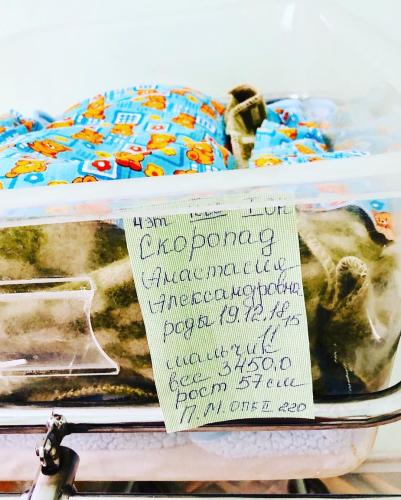 4эт
Скоропад
Анастасия
Александровна
роды 19.12.18 15
11
мальчик
вес 3450,0
рост 57 см
П.М. ОПК II 220